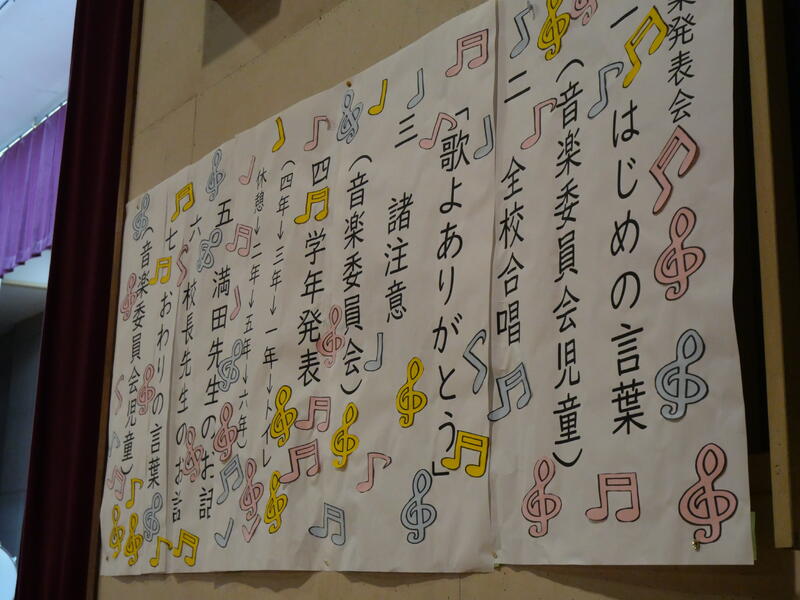 楽発表会
一 はじめの言葉
(音楽委員会児童)
二 全校合唱
「歌よありがとう」
三 諸注意
(音楽委員会)
四 学年発表
(四年→三年→一年→トイレ
休憩→二年→五年→六年)
五 満田先生のお話
六 校長先生のお話
七 おわりの言葉
(音楽委員会児童)